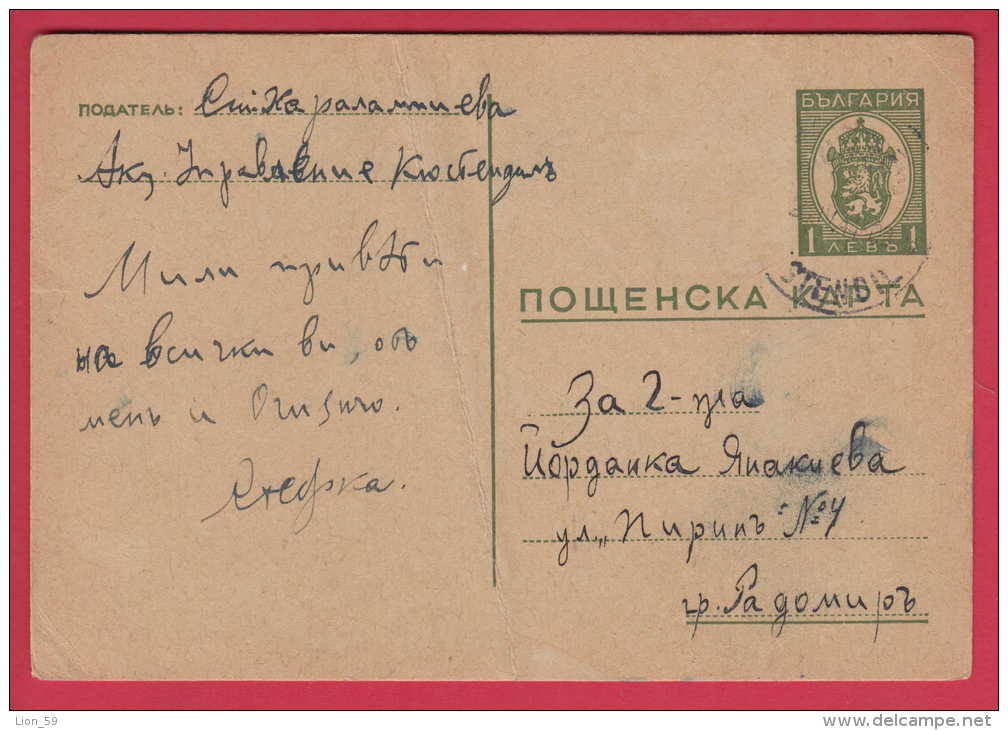 ПОДАТЕЛЬ: Ст. Харалампиева
Акц. Управление Кюстендилъ
Мили привѣти
на всички ви, отъ
менъ и
Стефка.
БЪЛГАРИЯ
1 ЛЕВЪ 1
ПОЩЕНСКА КАРТА
За г-ца
Йорданка Янакиева
ул. „Пиринъ" № 4
гр. Радомиръ
Lion_59
www.delcampe.net